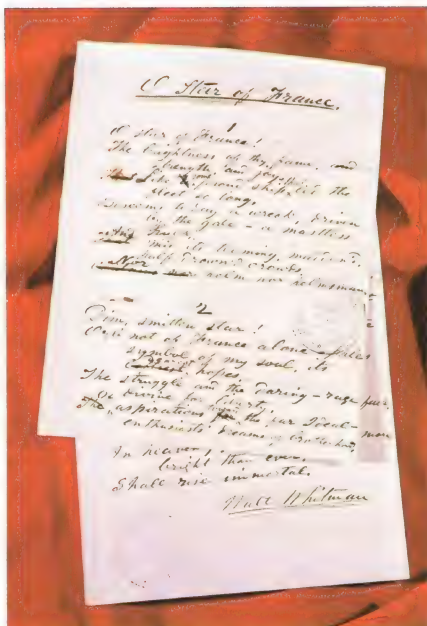 O Star of France.
1
O star of France!
The brightness of thy fame, and
strength and joy,
Like a proud ship, led the
fleet so long,
Beseems to-day a wreck, driven
by the gale – a mastless
hulk,
And 'mid its teeming, madden'd,
half-drown'd crowds,
Nor helm nor helmsman.
2
Dim, smitten star!
Orb not of France alone
symbol of my soul, its
dearest hopes,
The struggle and the daring – rage
divine for liberty,
The aspirations the far Ideal –
enthusiasts' dreams of brotherhood,
In heaven,
bright than ever,
Shall rise immortal.
Walt Whitman